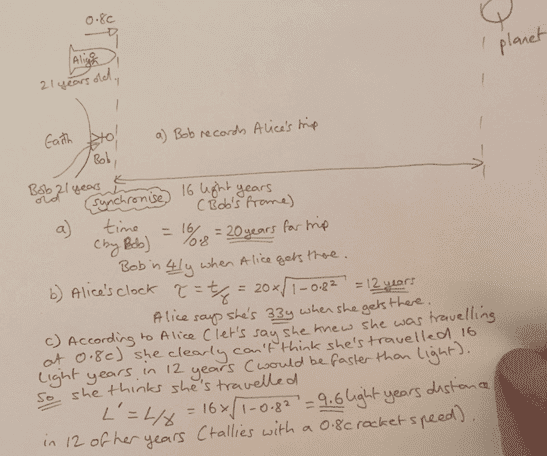 0.8c
Alice
planet
21 years old
Earth
Bob
a) Bob records Alice's trip
Bob 21 years
old
synchronise
16 light years
(Bob's frame)
a) time = 16/0.8 = 20 years for trip
(by Bob)
Bob is 41y when Alice gets there.
b) Alice's clock τ = t/γ = 20×√1-0.8² = 12 years
Alice says she's 33y when she gets there.
c) According to Alice (let's say she knew she was travelling
at 0.8c) she clearly can't think she's travelled 16
light years in 12 years (would be faster than light).
So she thinks she's travelled
L' = L/γ = 16×√1-0.8² = 9.6 light years distance
in 12 of her years (tallies with a 0.8c rocket speed).